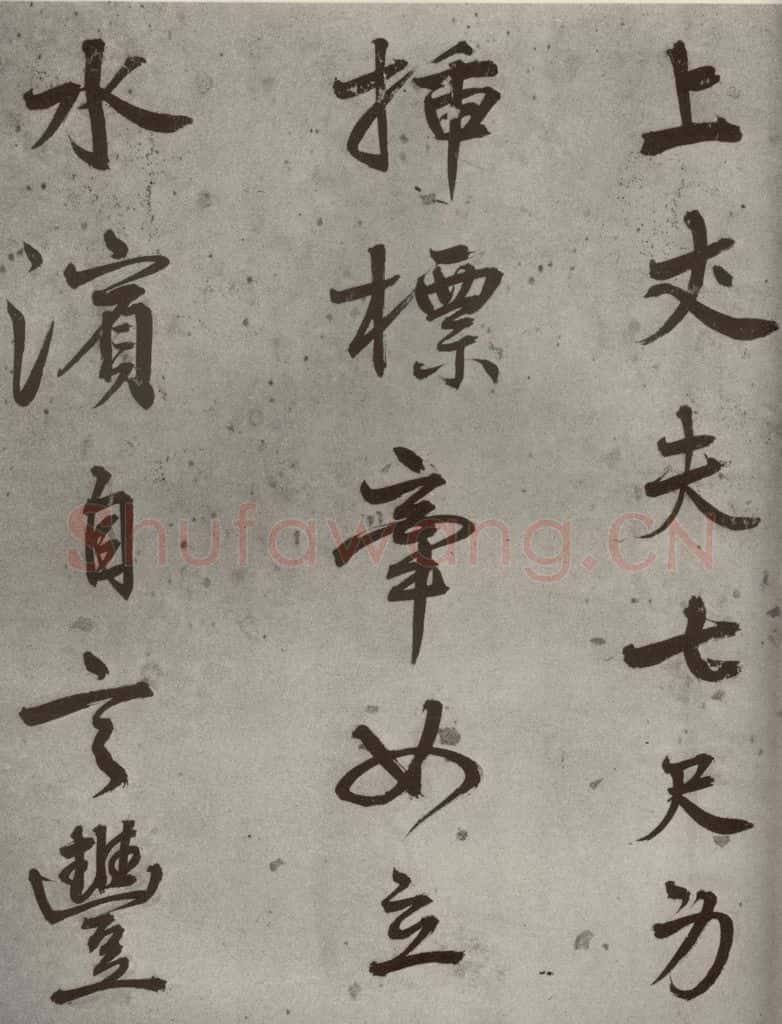 上丈夫七尺身
插標牽女立
水濱自言豐
Shufawang.CN